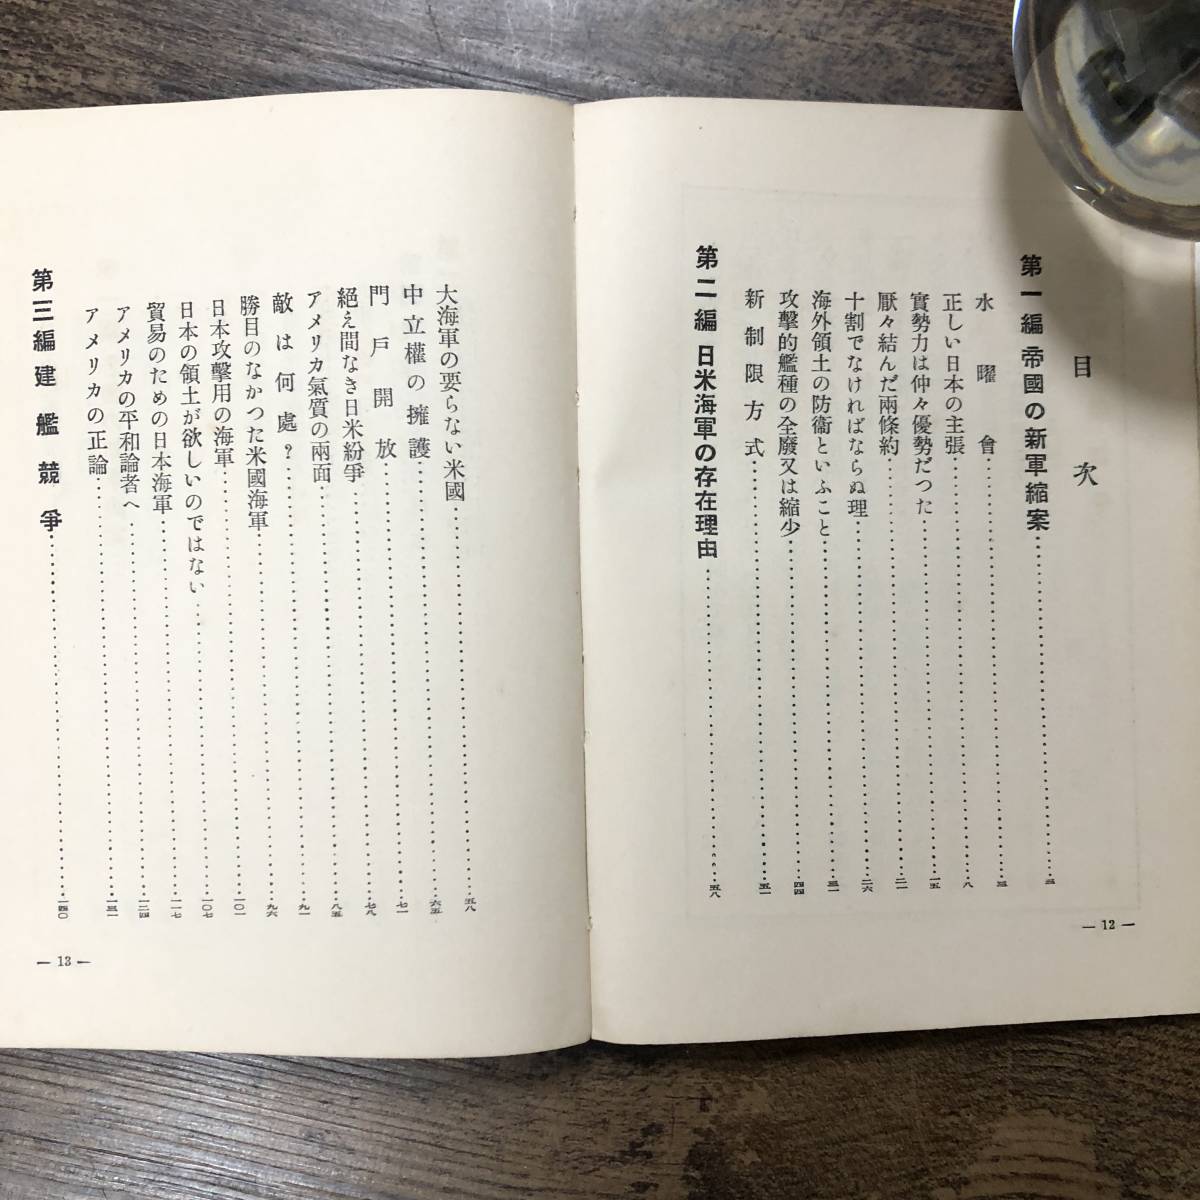 目次
第一編 帝國の新軍縮案……三
水曜會……三
正しい日本の主張……八
實勢力は仲々優勢だつた……一五
厭々結んだ兩條約……二一
十割でなければならぬ理……二六
海外領土の防衞といふこと……三一
攻擊的艦種の全廢又は縮少……四四
新制限方式……五一
第二編 日米海軍の存在理由……五八
— 12 —
大海軍の要らない米國……五八
中立權の擁護……六五
門戶開放……七一
絕え間なき日米紛爭……七八
アメリカ氣質の兩面……八五
敵は何處?……九一
勝目のなかつた米國海軍……九六
日本攻擊用の海軍……一〇一
日本の領土が欲しいのではない……一〇七
貿易のための日本海軍……一一七
アメリカの平和論者へ……一二四
アメリカの正論……一三一
第三編 建艦競爭……一四〇
— 13 —